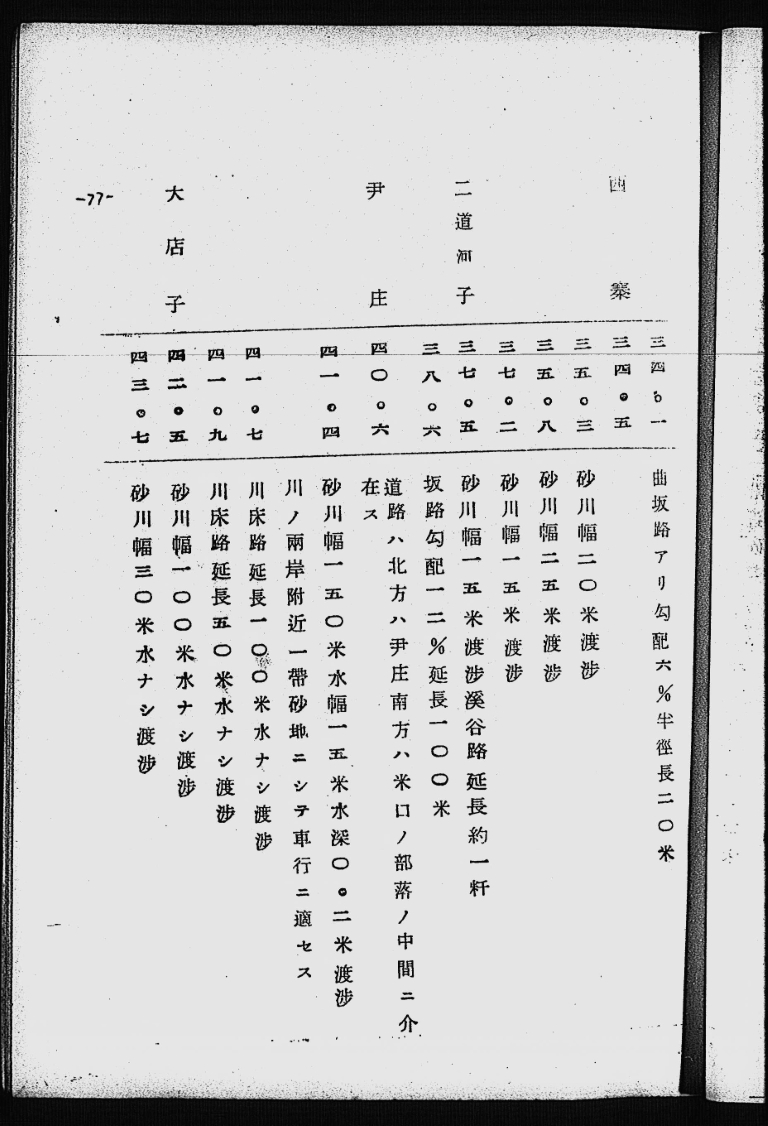 三四。一 曲坂路アリ勾配六%半徑長二〇米
寨 三四。五
三五。三 砂川幅二〇米渡涉
三五。八 砂川幅二五米渡涉
三七。二 砂川幅一五米渡涉
二道河子 三七。五 砂川幅一五米渡涉溪谷路延長約一粁
三八。六 坂路勾配一二%延長一〇〇米
尹庄 四〇。六 道路ハ北方ハ尹庄南方ハ米口ノ部落ノ中間ニ介
在ス
四一。四 砂川幅一五〇米水幅一五米水深〇。二米渡涉
川ノ兩岸附近一帶砂地ニシテ車行ニ適セス
四一。七 川床路延長一〇〇米水ナシ渡涉
四一。九 川床路延長五〇米水ナシ渡涉
大店子 四二。五 砂川幅一〇〇米水ナシ渡涉
四三。七 砂川幅三〇米水ナシ渡涉
-77-